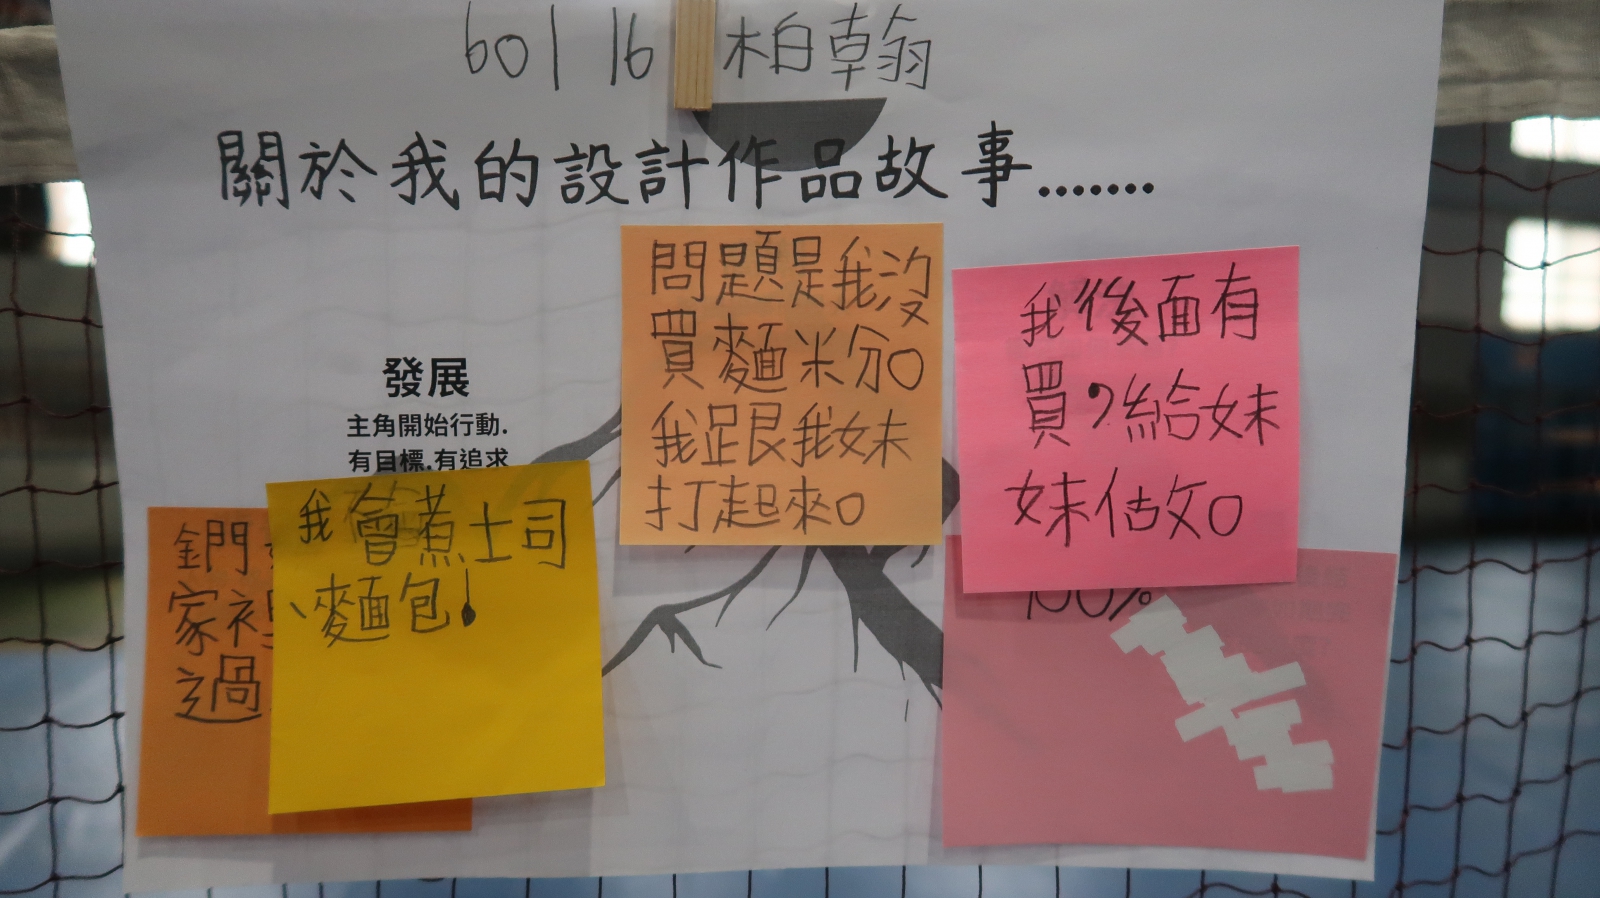 601 16 柏翰
關於我的設計作品故事.......
問題是我沒
買麵米分。
我跟我妹
打起來。
我後面有
買,給妹
妹估攵。
發展
主角開始行動.
有目標.有追求
我會煮土司
、麵包!
鉰門
家裡
過
100%